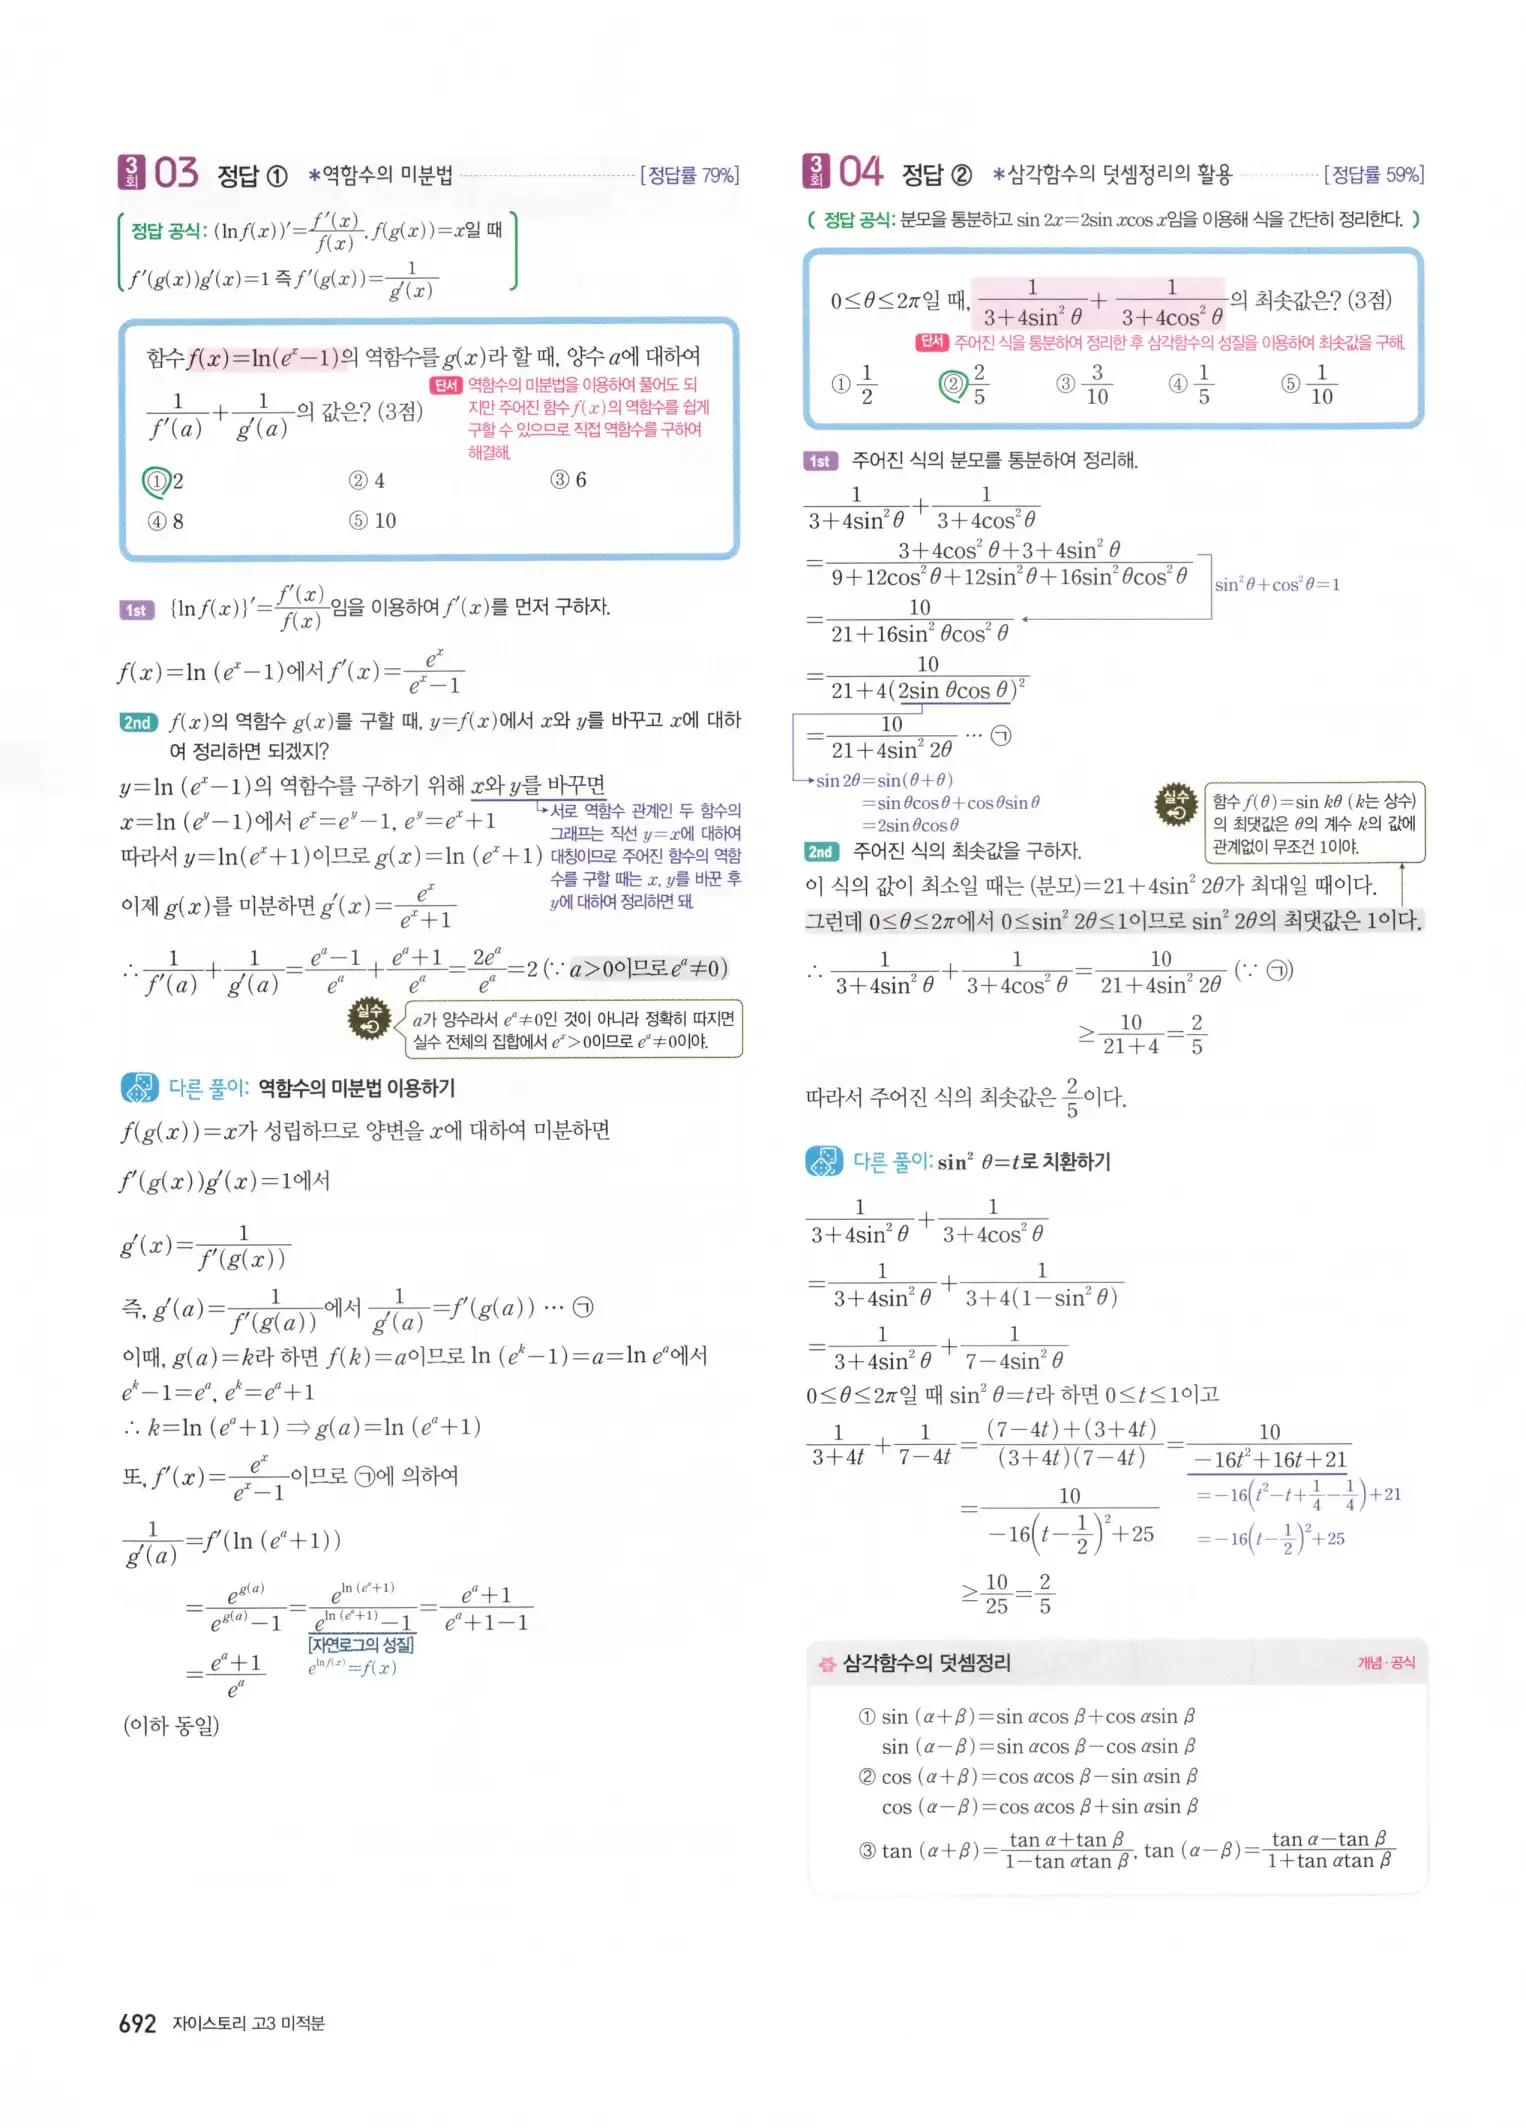 3회 03 정답 ① *역함수의 미분법 [정답률 79%]
정답 공식: (ln f(x))′=f′(x)/f(x), f(g(x))=x일 때
f′(g(x))g′(x)=1 즉 f′(g(x))=1/g′(x)
함수 f(x)=ln(eˣ−1)의 역함수를 g(x)라 할 때, 양수 a에 대하여
1/f′(a)+1/g′(a)의 값은? (3점)
단서 역함수의 미분법을 이용하여 풀어도 되
지만 주어진 함수 f(x)의 역함수를 쉽게
구할 수 있으므로 직접 역함수를 구하여
해결해.
① 2 ② 4 ③ 6
④ 8 ⑤ 10
1st {ln f(x)}′=f′(x)/f(x)임을 이용하여 f′(x)를 먼저 구하자.
f(x)=ln (eˣ−1)에서 f′(x)=eˣ/(eˣ−1)
2nd f(x)의 역함수 g(x)를 구할 때, y=f(x)에서 x와 y를 바꾸고 x에 대하
여 정리하면 되겠지?
y=ln (eˣ−1)의 역함수를 구하기 위해 x와 y를 바꾸면
x=ln (eʸ−1)에서 eˣ=eʸ−1, eʸ=eˣ+1
따라서 y=ln(eˣ+1)이므로 g(x)=ln (eˣ+1)
서로 역함수 관계인 두 함수의
그래프는 직선 y=x에 대하여
대칭이므로 주어진 함수의 역함
수를 구할 때는 x, y를 바꾼 후
y에 대하여 정리하면 돼.
이제 g(x)를 미분하면 g′(x)=eˣ/(eˣ+1)
∴ 1/f′(a)+1/g′(a)=(eᵃ−1)/eᵃ+(eᵃ+1)/eᵃ=2eᵃ/eᵃ=2 (∵ a>0이므로 eᵃ≠0)
실수 a가 양수라서 eᵃ≠0인 것이 아니라 정확히 따지면
실수 전체의 집합에서 eˣ>0이므로 eᵃ≠0이야.
다른 풀이: 역함수의 미분법 이용하기
f(g(x))=x가 성립하므로 양변을 x에 대하여 미분하면
f′(g(x))g′(x)=1에서
g′(x)=1/f′(g(x))
즉, g′(a)=1/f′(g(a))에서 1/g′(a)=f′(g(a)) ⋯ ㉠
이때, g(a)=k라 하면 f(k)=a이므로 ln (eᵏ−1)=a=ln eᵃ에서
eᵏ−1=eᵃ, eᵏ=eᵃ+1
∴ k=ln (eᵃ+1) ⇒ g(a)=ln (eᵃ+1)
또, f′(x)=eˣ/(eˣ−1)이므로 ㉠에 의하여
1/g′(a)=f′(ln (eᵃ+1))
=e^{g(a)}/(e^{g(a)}−1)=e^{ln (eᵃ+1)}/(e^{ln (eᵃ+1)}−1)=(eᵃ+1)/(eᵃ+1−1)
[자연로그의 성질]
e^{ln f(x)}=f(x)
=(eᵃ+1)/eᵃ
(이하 동일)
3회 04 정답 ② *삼각함수의 덧셈정리의 활용 [정답률 59%]
( 정답 공식: 분모을 통분하고 sin 2x=2sin xcos x임을 이용해 식을 간단히 정리한다. )
0≤θ≤2π일 때, 1/(3+4sin² θ)+1/(3+4cos² θ)의 최솟값은? (3점)
단서 주어진 식을 통분하여 정리한 후 삼각함수의 성질을 이용하여 최솟값을 구해.
① 1/2 ② 2/5 ③ 3/10 ④ 1/5 ⑤ 1/10
1st 주어진 식의 분모를 통분하여 정리해.
1/(3+4sin² θ)+1/(3+4cos² θ)
=(3+4cos² θ+3+4sin² θ)/(9+12cos² θ+12sin² θ+16sin² θcos² θ)
sin²θ+cos²θ=1
=10/(21+16sin² θcos² θ)
=10/(21+4(2sin θcos θ)²)
=10/(21+4sin² 2θ) ⋯ ㉠
sin 2θ=sin(θ+θ)
=sin θcos θ+cos θsin θ
=2sin θcos θ
실수 함수 f(θ)=sin kθ (k는 상수)
의 최댓값은 θ의 계수 k의 값에
관계없이 무조건 1이야.
2nd 주어진 식의 최솟값을 구하자.
이 식의 값이 최소일 때는 (분모)=21+4sin² 2θ가 최대일 때이다.
그런데 0≤θ≤2π에서 0≤sin² 2θ≤1이므로 sin² 2θ의 최댓값은 1이다.
∴ 1/(3+4sin² θ)+1/(3+4cos² θ)=10/(21+4sin² 2θ) (∵ ㉠)
≥10/(21+4)=2/5
따라서 주어진 식의 최솟값은 2/5이다.
다른 풀이: sin² θ=t로 치환하기
1/(3+4sin² θ)+1/(3+4cos² θ)
=1/(3+4sin² θ)+1/(3+4(1−sin² θ))
=1/(3+4sin² θ)+1/(7−4sin² θ)
0≤θ≤2π일 때 sin² θ=t라 하면 0≤t≤1이고
1/(3+4t)+1/(7−4t)=((7−4t)+(3+4t))/((3+4t)(7−4t))=10/(−16t²+16t+21)
=−16(t²−t+1/4−1/4)+21
=−16(t−1/2)²+25
=10/(−16(t−1/2)²+25)
≥10/25=2/5
삼각함수의 덧셈정리 개념·공식
① sin (α+β)=sin αcos β+cos αsin β
sin (α−β)=sin αcos β−cos αsin β
② cos (α+β)=cos αcos β−sin αsin β
cos (α−β)=cos αcos β+sin αsin β
③ tan (α+β)=(tan α+tan β)/(1−tan αtan β), tan (α−β)=(tan α−tan β)/(1+tan αtan β)
692 자이스토리 고3 미적분